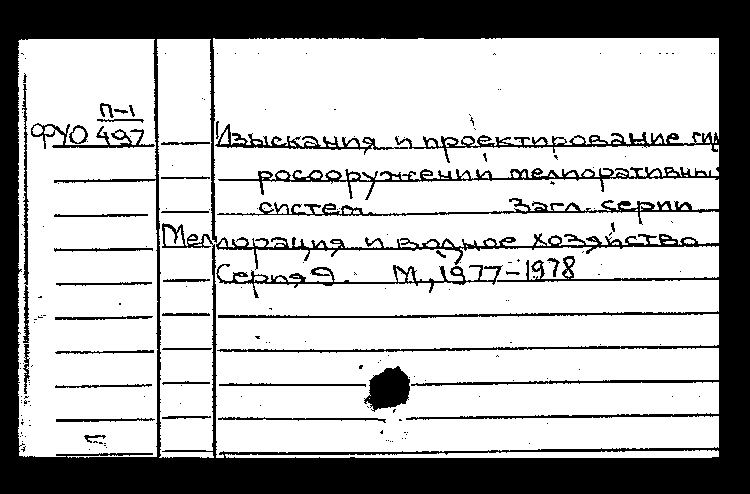 П-1
ФУО 497
Изыскания и проектирование гид
росооружений мелиоративных
систем. Загл. серии
Мелиорация и водное хозяйство
Серия 9. М., 1977-1978